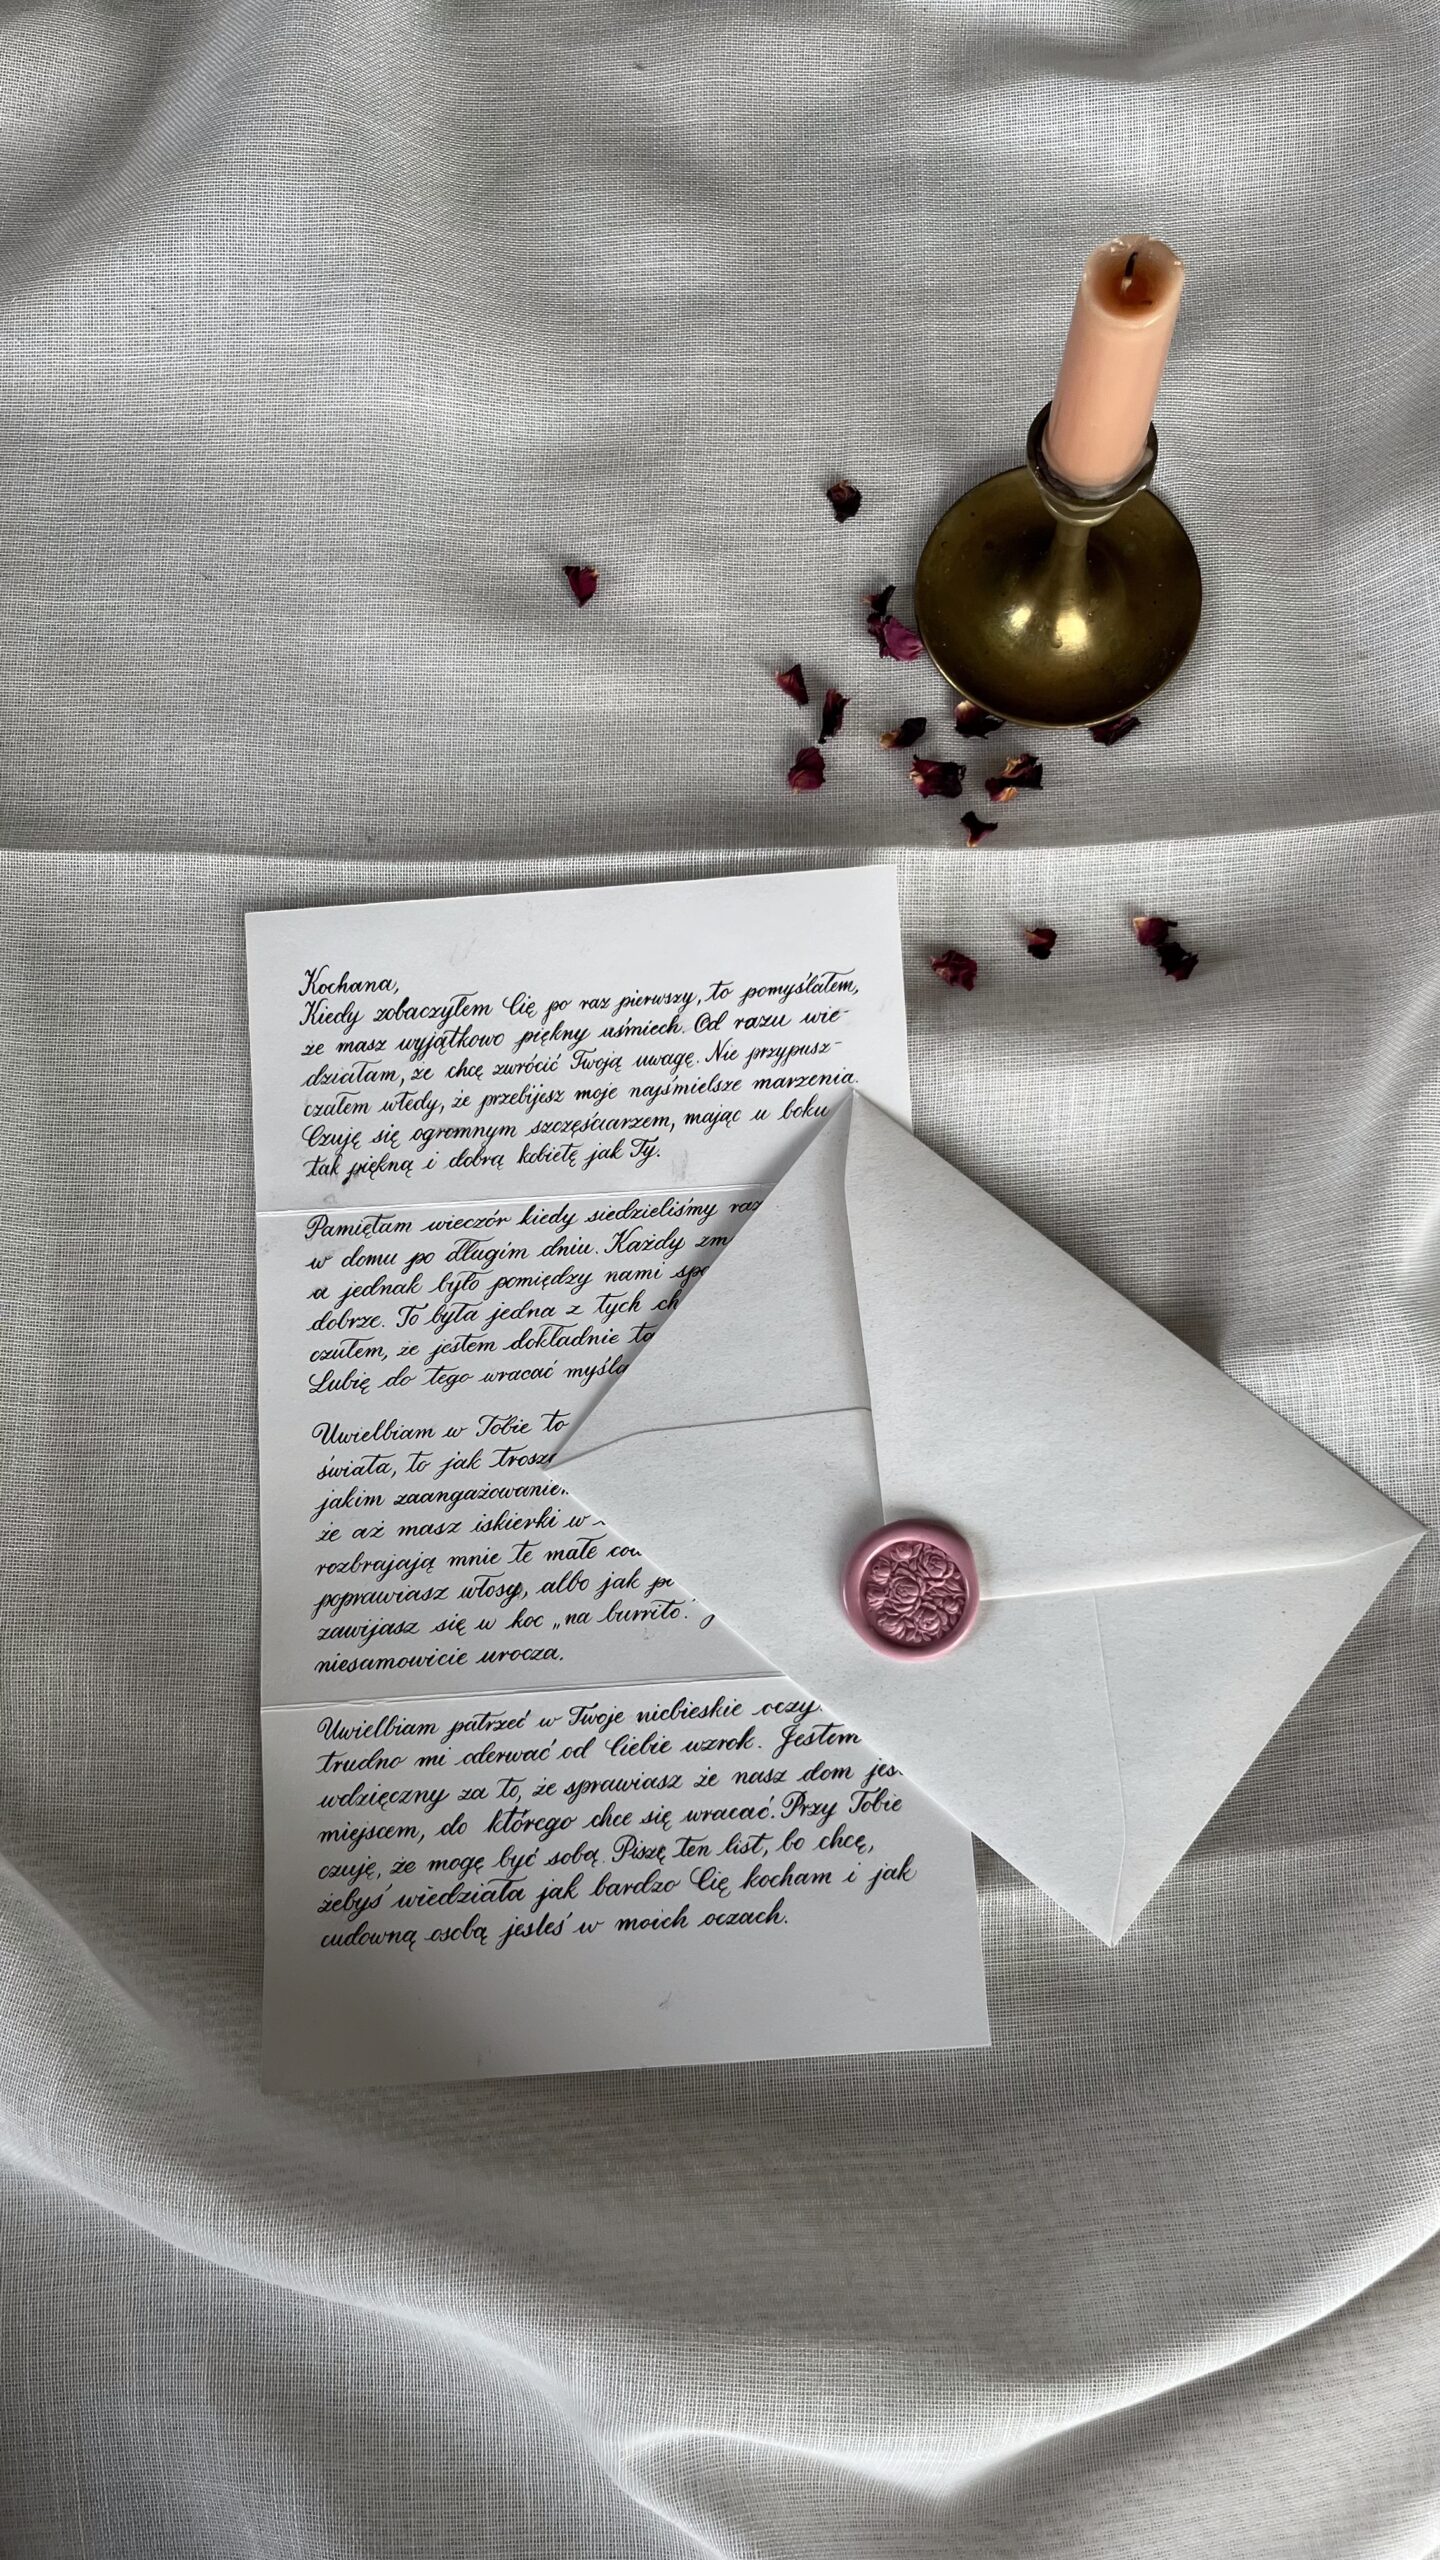 Kochana,
Kiedy zobaczyłem Cię po raz pierwszy, to pomyślałem,
że masz wyjątkowo piękny uśmiech. Od razu wie-
działam, że chcę zwrócić Twoją uwagę. Nie przypusz-
czałem wtedy, że przebijesz moje najśmielsze marzenia.
Czuję się ogromnym szczęściarzem, mając u boku
tak piękną i dobrą kobietę jak Ty.
Pamiętam wieczór kiedy siedzieliśmy
w domu po długim dniu. Każdy
a jednak było pomiędzy nami
dobrze. To była jedna z tych
czułem, że jestem dokładnie
Lubię do tego wracać
Uwielbiam w Tobie to
świata, to jak
jakim
że aż masz iskierki w
rozbrajają mnie te małe
poprawiasz włosy, albo jak
zawijasz się w koc „na burrito."
niesamowicie urocza.
Uwielbiam patrzeć w Twoje niebieskie oczy
trudno mi oderwać od Ciebie wzrok. Jestem
wdzięczny za to, że sprawiasz że nasz dom
miejscem, do którego chce się wracać. Przy Tobie
czuję, że mogę być sobą. Piszę ten list, bo chcę,
żebyś wiedziała jak bardzo Cię kocham i jak
cudowną osobą jesteś w moich oczach.